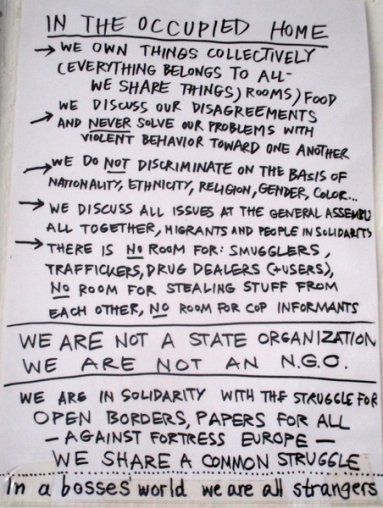 IN THE OCCUPIED HOME
→ WE OWN THINGS COLLECTIVELY
(EVERYTHING BELONGS TO ALL-
WE SHARE THINGS) ROOMS) FOOD
→ WE DISCUSS OUR DISAGREEMENTS
AND NEVER SOLVE OUR PROBLEMS WITH
VIOLENT BEHAVIOR TOWARD ONE ANOTHER
→ WE DO NOT DISCRIMINATE ON THE BASIS OF
NATIONALITY, ETHNICITY, RELIGION, GENDER, COLOR...
→ WE DISCUSS ALL ISSUES AT THE GENERAL ASSEMBLY
ALL TOGETHER, MIGRANTS AND PEOPLE IN SOLIDARITY
→ THERE IS NO ROOM FOR: SMUGGLERS,
TRAFFICKERS, DRUG DEALERS (+USERS),
NO ROOM FOR STEALING STUFF FROM
EACH OTHER, NO ROOM FOR COP INFORMANTS
WE ARE NOT A STATE ORGANIZATION
WE ARE NOT AN N.G.O.
WE ARE IN SOLIDARITY WITH THE STRUGGLE FOR
OPEN BORDERS, PAPERS FOR ALL
- AGAINST FORTRESS EUROPE -
WE SHARE A COMMON STRUGGLE
In a bosses' world we are all strangers